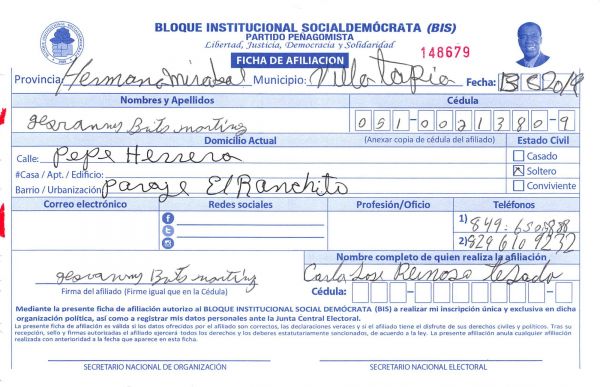 BLOQUE INSTITUCIONAL SOCIALDEMÓCRATA (BIS)
PARTIDO PEÑAGOMISTA
Libertad, Justicia, Democracia y Solidaridad
FICHA DE AFILIACION
148679
Provincia Hermana Mirabal Municipio: Villa tapia Fecha:
Nombres y Apellidos
Cédula
051-0021380-9
(Anexar copia de cédula del afiliado)
Domicilio Actual
Estado Civil
Calle: Pepe Herrera
Casado
#Casa / Apt. / Edificio:
Soltero
Barrio / Urbanización: Paraje El Ranchito
Conviviente
Correo electrónico
Redes sociales
Profesión/Oficio
Teléfonos
1) 849
2) 829 610 9232
Nombre completo de quien realiza la afiliación
Carla Jose Reinosa
Firma del afiliado (Firme igual que en la Cédula)
Cédula:
Mediante la presente ficha de afiliación autorizo al BLOQUE INSTITUCIONAL SOCIAL DEMÓCRATA (BIS) a realizar mi inscripción única y exclusiva en dicha
organización política, así como a registrar mis datos personales ante la Junta Central Electoral.
La presente ficha de afiliación es válida si los datos ofrecidos por el afiliado son correctos, las declaraciones veraces y si el afiliado tiene el disfrute de sus derechos civiles y políticos. Tras su
recepción, sello y firmas autorizadas el afiliado ejercerá todos los derechos y los deberes estatutariamente sencionados, de acuerdo a la ley. La presente afiliación anula cualquier afiliación
realizada con anterioridad a la fecha que aparece en esta ficha.
SECRETARIO NACIONAL DE ORGANIZACIÓN
SECRETARIO NACIONAL ELECTORAL